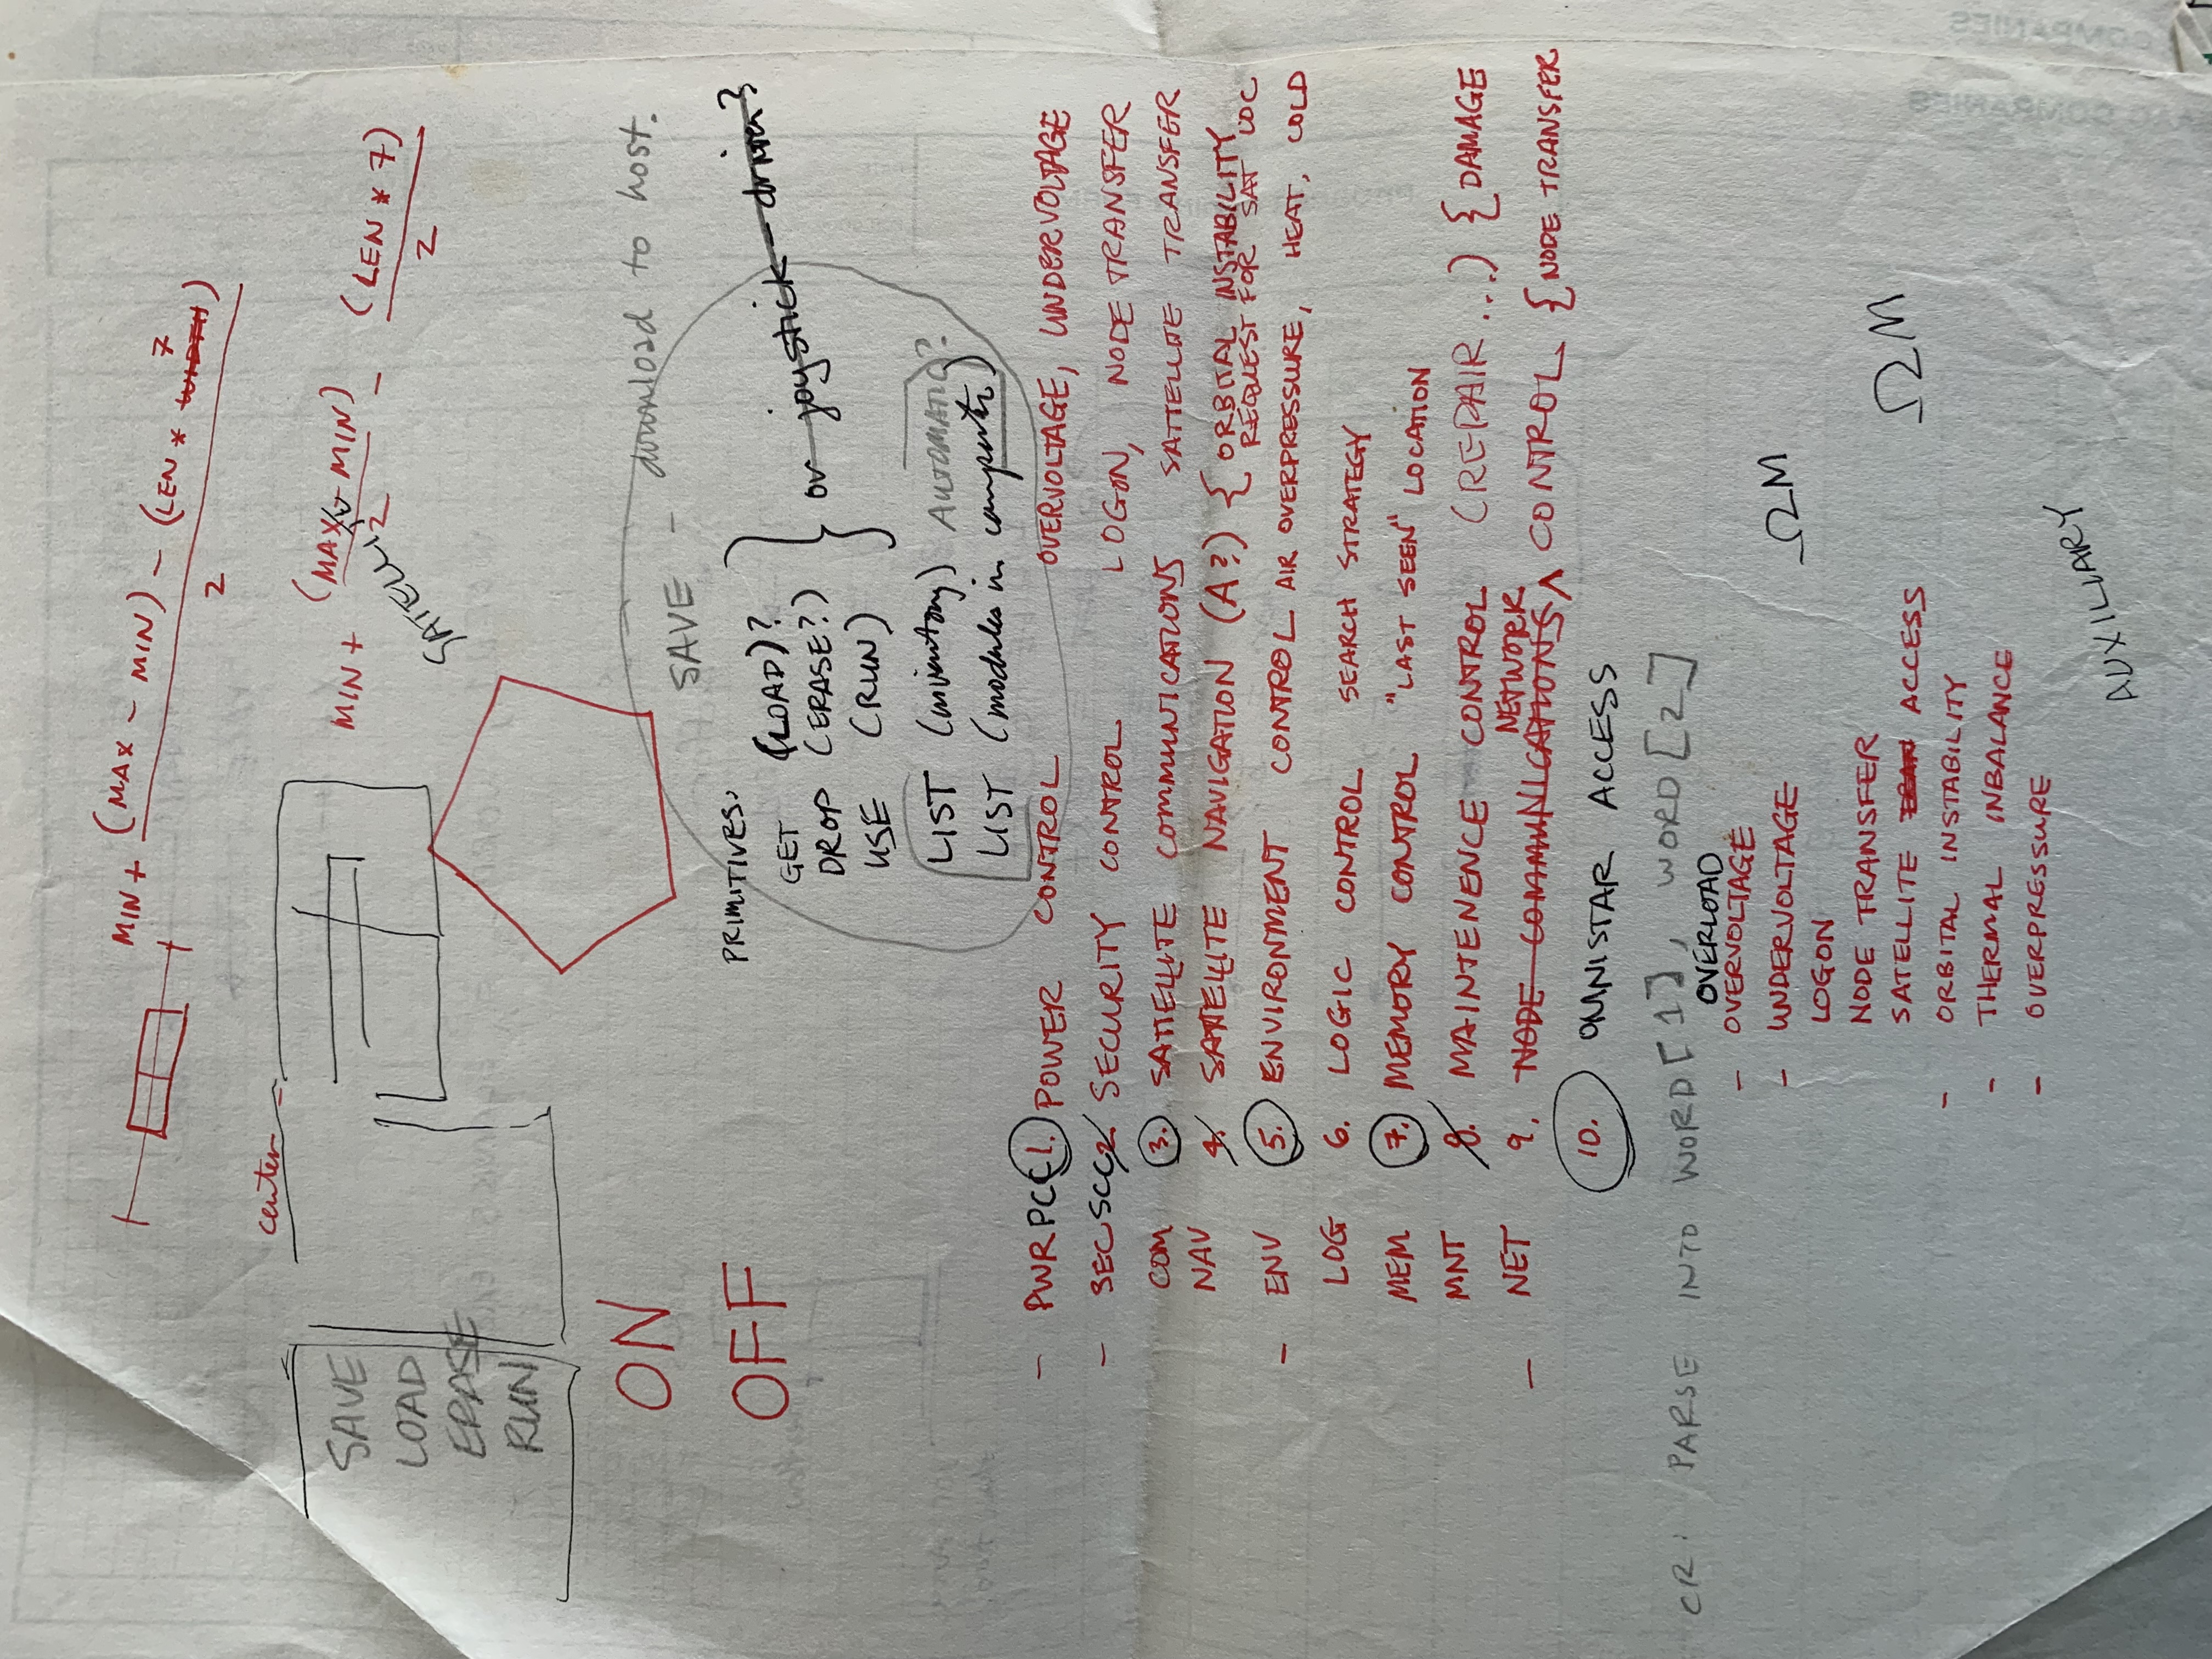 MIN + (MAX - MIN) - (LEN * 7 WIDTH)
2
center =
MIN + (MAX - MIN) - (LEN * 7)
2 2
SATELLITE
SAVE
LOAD
ERASE
RUN
ON
OFF
SAVE - download to host.
PRIMITIVES:
GET (LOAD)?
DROP (ERASE?)
USE (RUN)
or joystick-driven?
LIST (inventory) AUTOMATIC?
LIST (modules in computer)
- PWR PCC 1. POWER CONTROL OVERVOLTAGE, UNDERVOLTAGE
- SEC SCC 2. SECURITY CONTROL LOGON, NODE TRANSFER
COM 3. SATTELLITE COMMUNICATIONS SATTELLITE TRANSFER
NAV 4. SATTELLITE NAVIGATION (A?) { ORBITAL INSTABILITY
REQUEST FOR SAT LOC
- ENV 5. ENVIRONMENT CONTROL AIR OVERPRESSURE, HEAT, COLD
LOG 6. LOGIC CONTROL SEARCH STRATEGY
MEM 7. MEMORY CONTROL "LAST SEEN" LOCATION
MNT 8. MAINTENENCE CONTROL (REPAIR...) { DAMAGE
NETWORK
- NET 9. NODE COMMUNICATIONS ^ CONTROL { NODE TRANSFER
10. OMNISTAR ACCESS
CR: PARSE INTO WORD[1], WORD[2]
OVERLOAD
- OVERVOLTAGE
- UNDERVOLTAGE
ΩM
LOGON
NODE TRANSFER
SATELLITE TRAN ACCESS
ΩM
- ORBITAL INSTABILITY
- THERMAL INBALANCE
- OVERPRESSURE
AUXILIARY